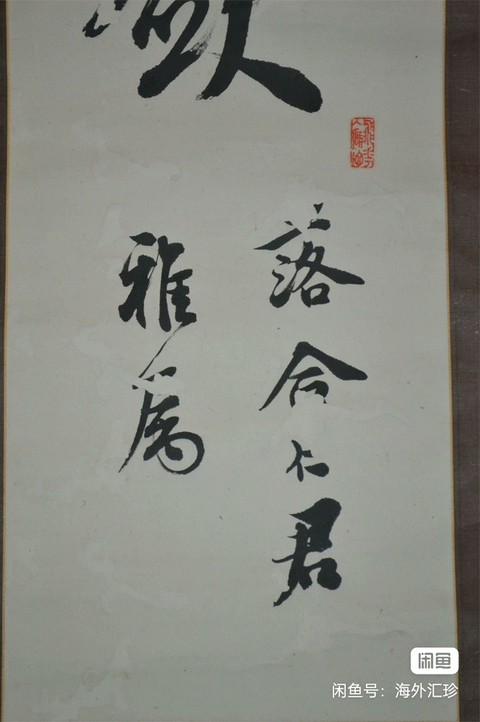 落合仁君
雅属
闲鱼
闲鱼号：海外汇珍